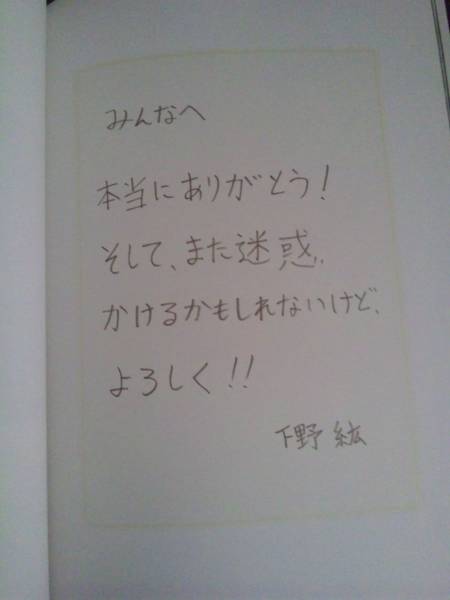 みんなへ
本当にありがとう!
そして、また迷惑
かけるかもしれないけど、
よろしく!!
下野 紘